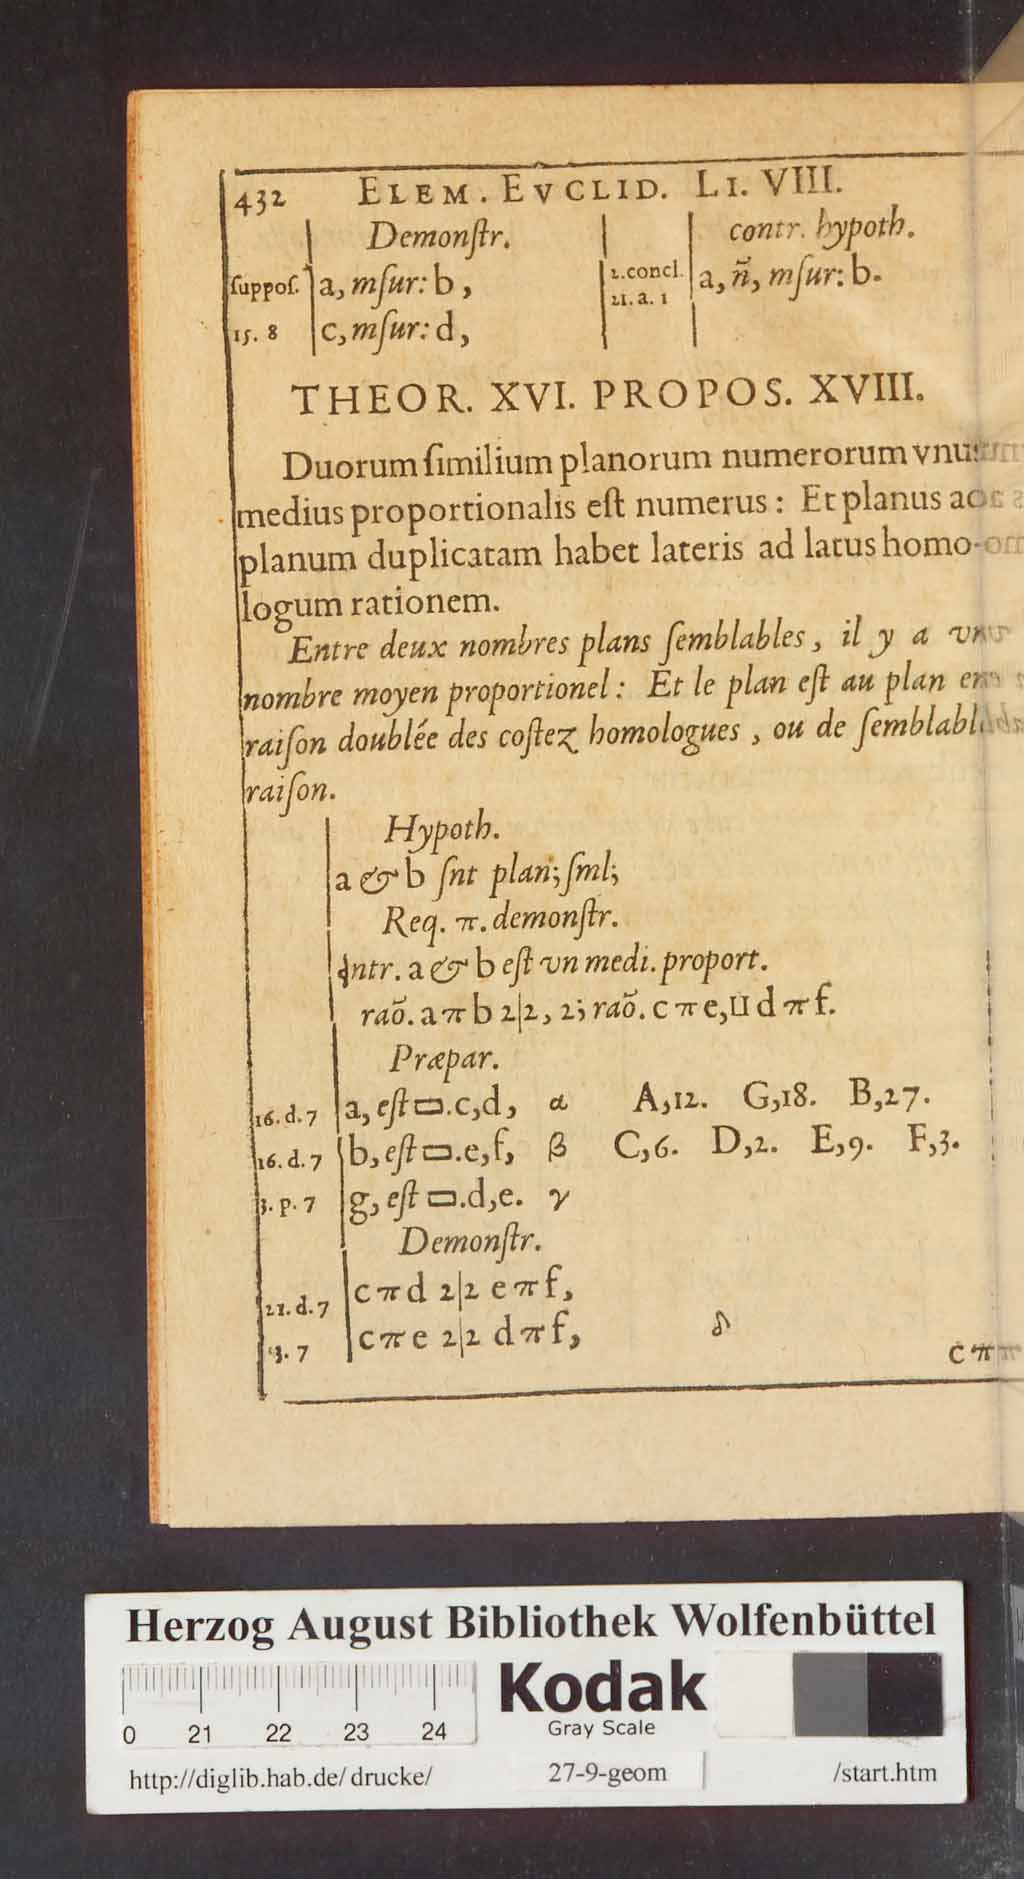 432 ELEM. EVCLID. LI. VIII.
Demonſtr.
suppoſ. a, mſur: b,
15. 8 c, mſur: d,
contr. hypoth.
2.concl. a, ñ, mſur: b.
21. a. 1
THEOR. XVI. PROPOS. XVIII.
Duorum ſimilium planorum numerorum vnus
medius proportionalis eſt numerus: Et planus ad
planum duplicatam habet lateris ad latus homo-
logum rationem.
Entre deux nombres plans ſemblables, il y a vn
nombre moyen proportionel: Et le plan eſt au plan en
raiſon doublée des coſtez homologues, ou de ſemblable
raiſon.
Hypoth.
a & b ſnt plan; ſml;
Req. π. demonſtr.
Intr. a & b eſt vn medi. proport.
raõ. a π b 2|2, 2; raõ. c π e, Π d π f.
Præpar.
16. d. 7 a, eſt ▭. c,d, α A,12. G,18. B,27.
16. d. 7 b, eſt ▭. e,f, β C,6. D,2. E,9. F,3.
3. p. 7 g, eſt ▭. d,e. γ
Demonſtr.
21. d. 7 c π d 2|2 e π f,
3. 7 c π e 2|2 d π f, δ
c π
Herzog August Bibliothek Wolfenbüttel
0 21 22 23 24
Kodak
Gray Scale
http://diglib.hab.de/drucke/ 27-9-geom /start.htm